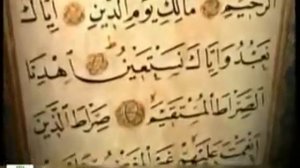 الرَّحِيمِ مَالِكِ يَوْمِ الدِّينِ إِيَّاكَ
نَعْبُدُ وَإِيَّاكَ نَسْتَعِينُ اهْدِنَا
الصِّرَاطَ الْمُسْتَقِيمَ صِرَاطَ الَّذِينَ
أَنْعَمْتَ عَلَيْهِمْ غَيْرِ الْمَغْضُوبِ عَلَيْهِمْ